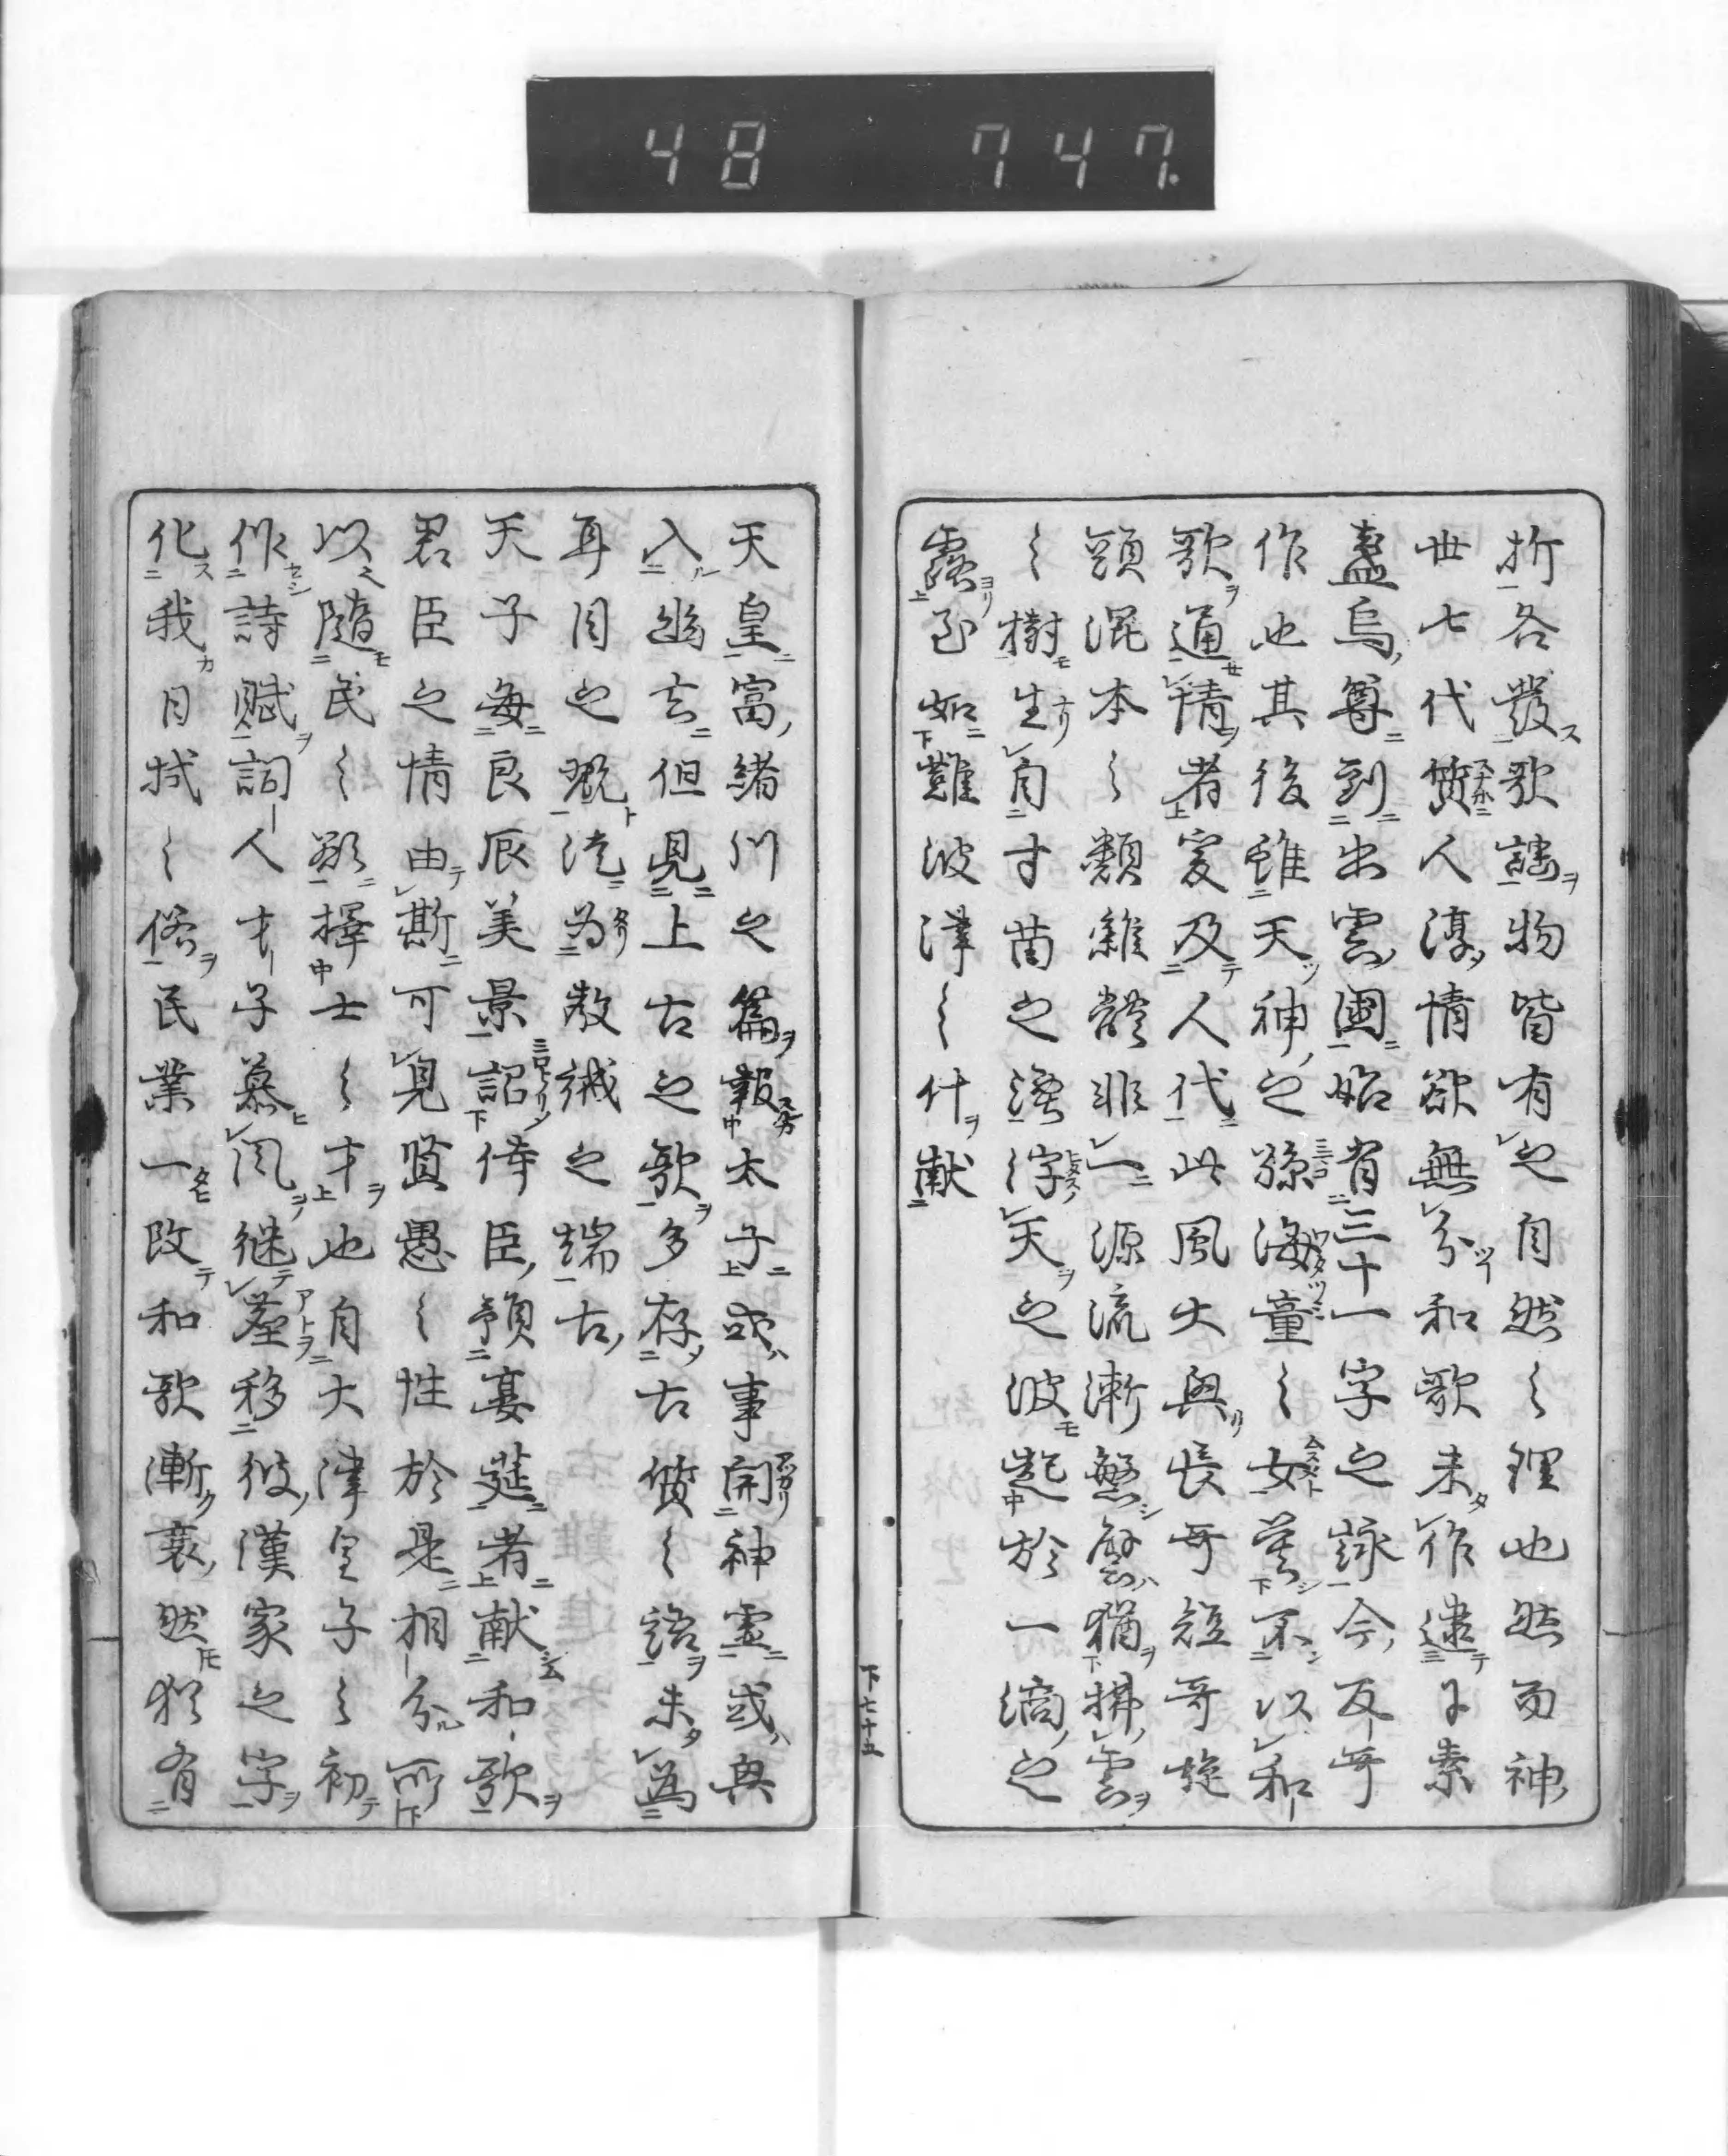 48 747.
折各發歌謡物皆有之自然之理也然而神
世七代質人淳情欲無分和歌未作逮于素
盞烏尊到出雲國始有三十一字之詠今反哥
作也其後雖天神之孫海童之女莫不以和
歌通情者爰及人代此風大興長哥短哥旋
頭混本之類雜體非一源流漸繁譬猶拂雲
之樹生自寸苗之浮天之波起於一滴之
露至如難波津之什献
天皇富緒川之篇報太子或事関神霊或興
入幽玄但見上古之歌多存古質之語未為
耳目之翫徒為教誡之端古
天子毎良辰美景詔侍臣預宴莚者献和歌
君臣之情由斯可見賢愚之性於是相分所
以随民之欲擇士之才也自大津皇子之初
作詩賦詞人才子慕風継塵移彼漢家之字
化我日域之俗民業一改和歌漸衰然猶有
下七十五